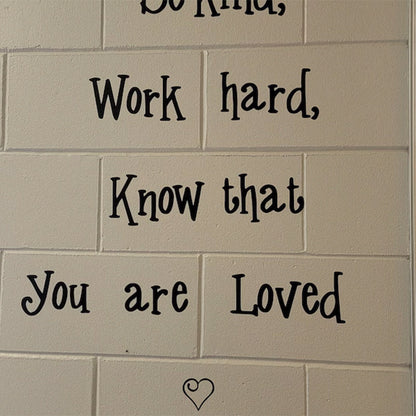 Be Kind,
Work hard,
Know that
you are Loved